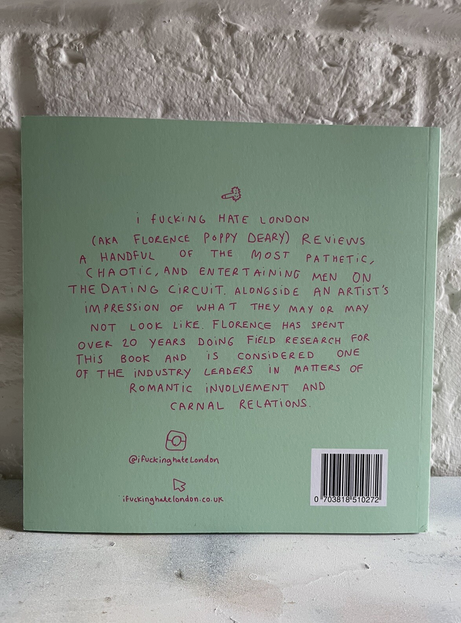 i FUCKING HATE LONDON
(AKA FLORENCE POPPY DEARY) REVIEWS
A HANDFUL OF THE MOST PATHETIC,
CHAOTIC, AND ENTERTAINING MEN ON
THE DATING CIRCUIT. ALONGSIDE AN ARTIST'S
IMPRESSION OF WHAT THEY MAY OR MAY
NOT LOOK LIKE. FLORENCE HAS SPENT
OVER 20 YEARS DOING FIELD RESEARCH FOR
THIS BOOK AND IS CONSIDERED ONE
OF THE INDUSTRY LEADERS IN MATTERS OF
ROMANTIC INVOLVEMENT AND
CARNAL RELATIONS.
@ifuckinghateLondon
ifuckinghatelondon.co.uk
0 703818 510272